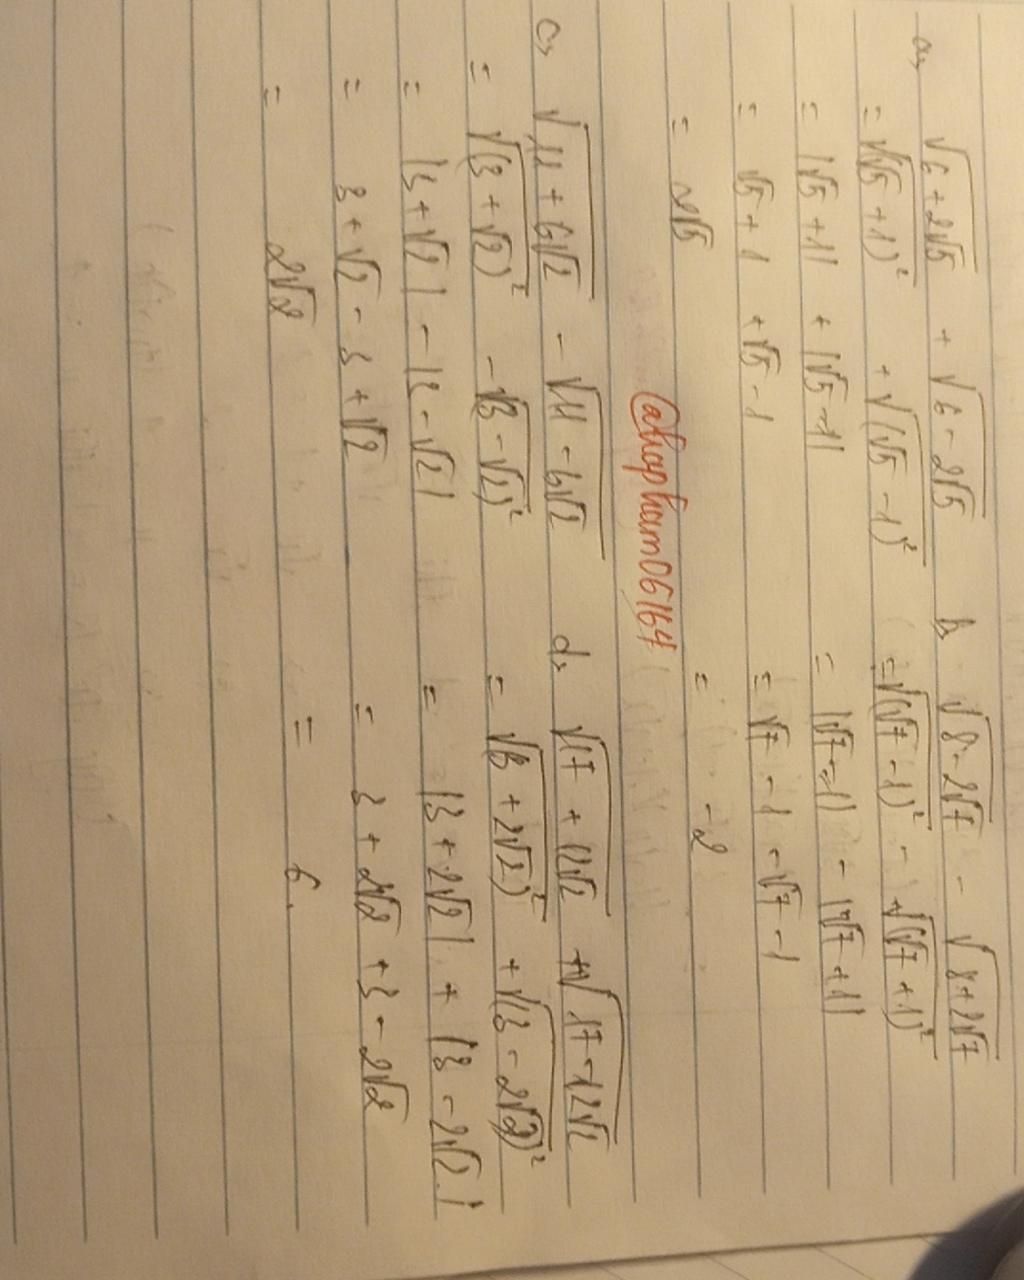 a, √(6 + 2√5) + √(6 - 2√5)
= √(√5 + 1)² + √(√5 - 1)²
= |√5 + 1| + |√5 - 1|
= √5 + 1 + √5 - 1
= 2√5
b, √(8 - 2√7) - √(8 + 2√7)
= √(√7 - 1)² - √(√7 + 1)²
= |√7 - 1| - |√7 + 1|
= √7 - 1 - √7 - 1
= -2
@hapham06164
c, √(11 + 6√2) - √(11 - 6√2)
= √(3 + √2)² - √(3 - √2)²
= |3 + √2| - |3 - √2|
= 3 + √2 - 3 + √2
= 2√2
d, √(17 + 12√2) + √(17 - 12√2)
= √(3 + 2√2)² + √(3 - 2√2)²
= |3 + 2√2| + |3 - 2√2|
= 3 + 2√2 + 3 - 2√2
= 6.